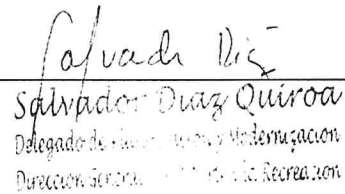 Salvador Díaz
Salvador Diaz Quiroa
Delegado de Modernizacion
Direccion General Recreacion